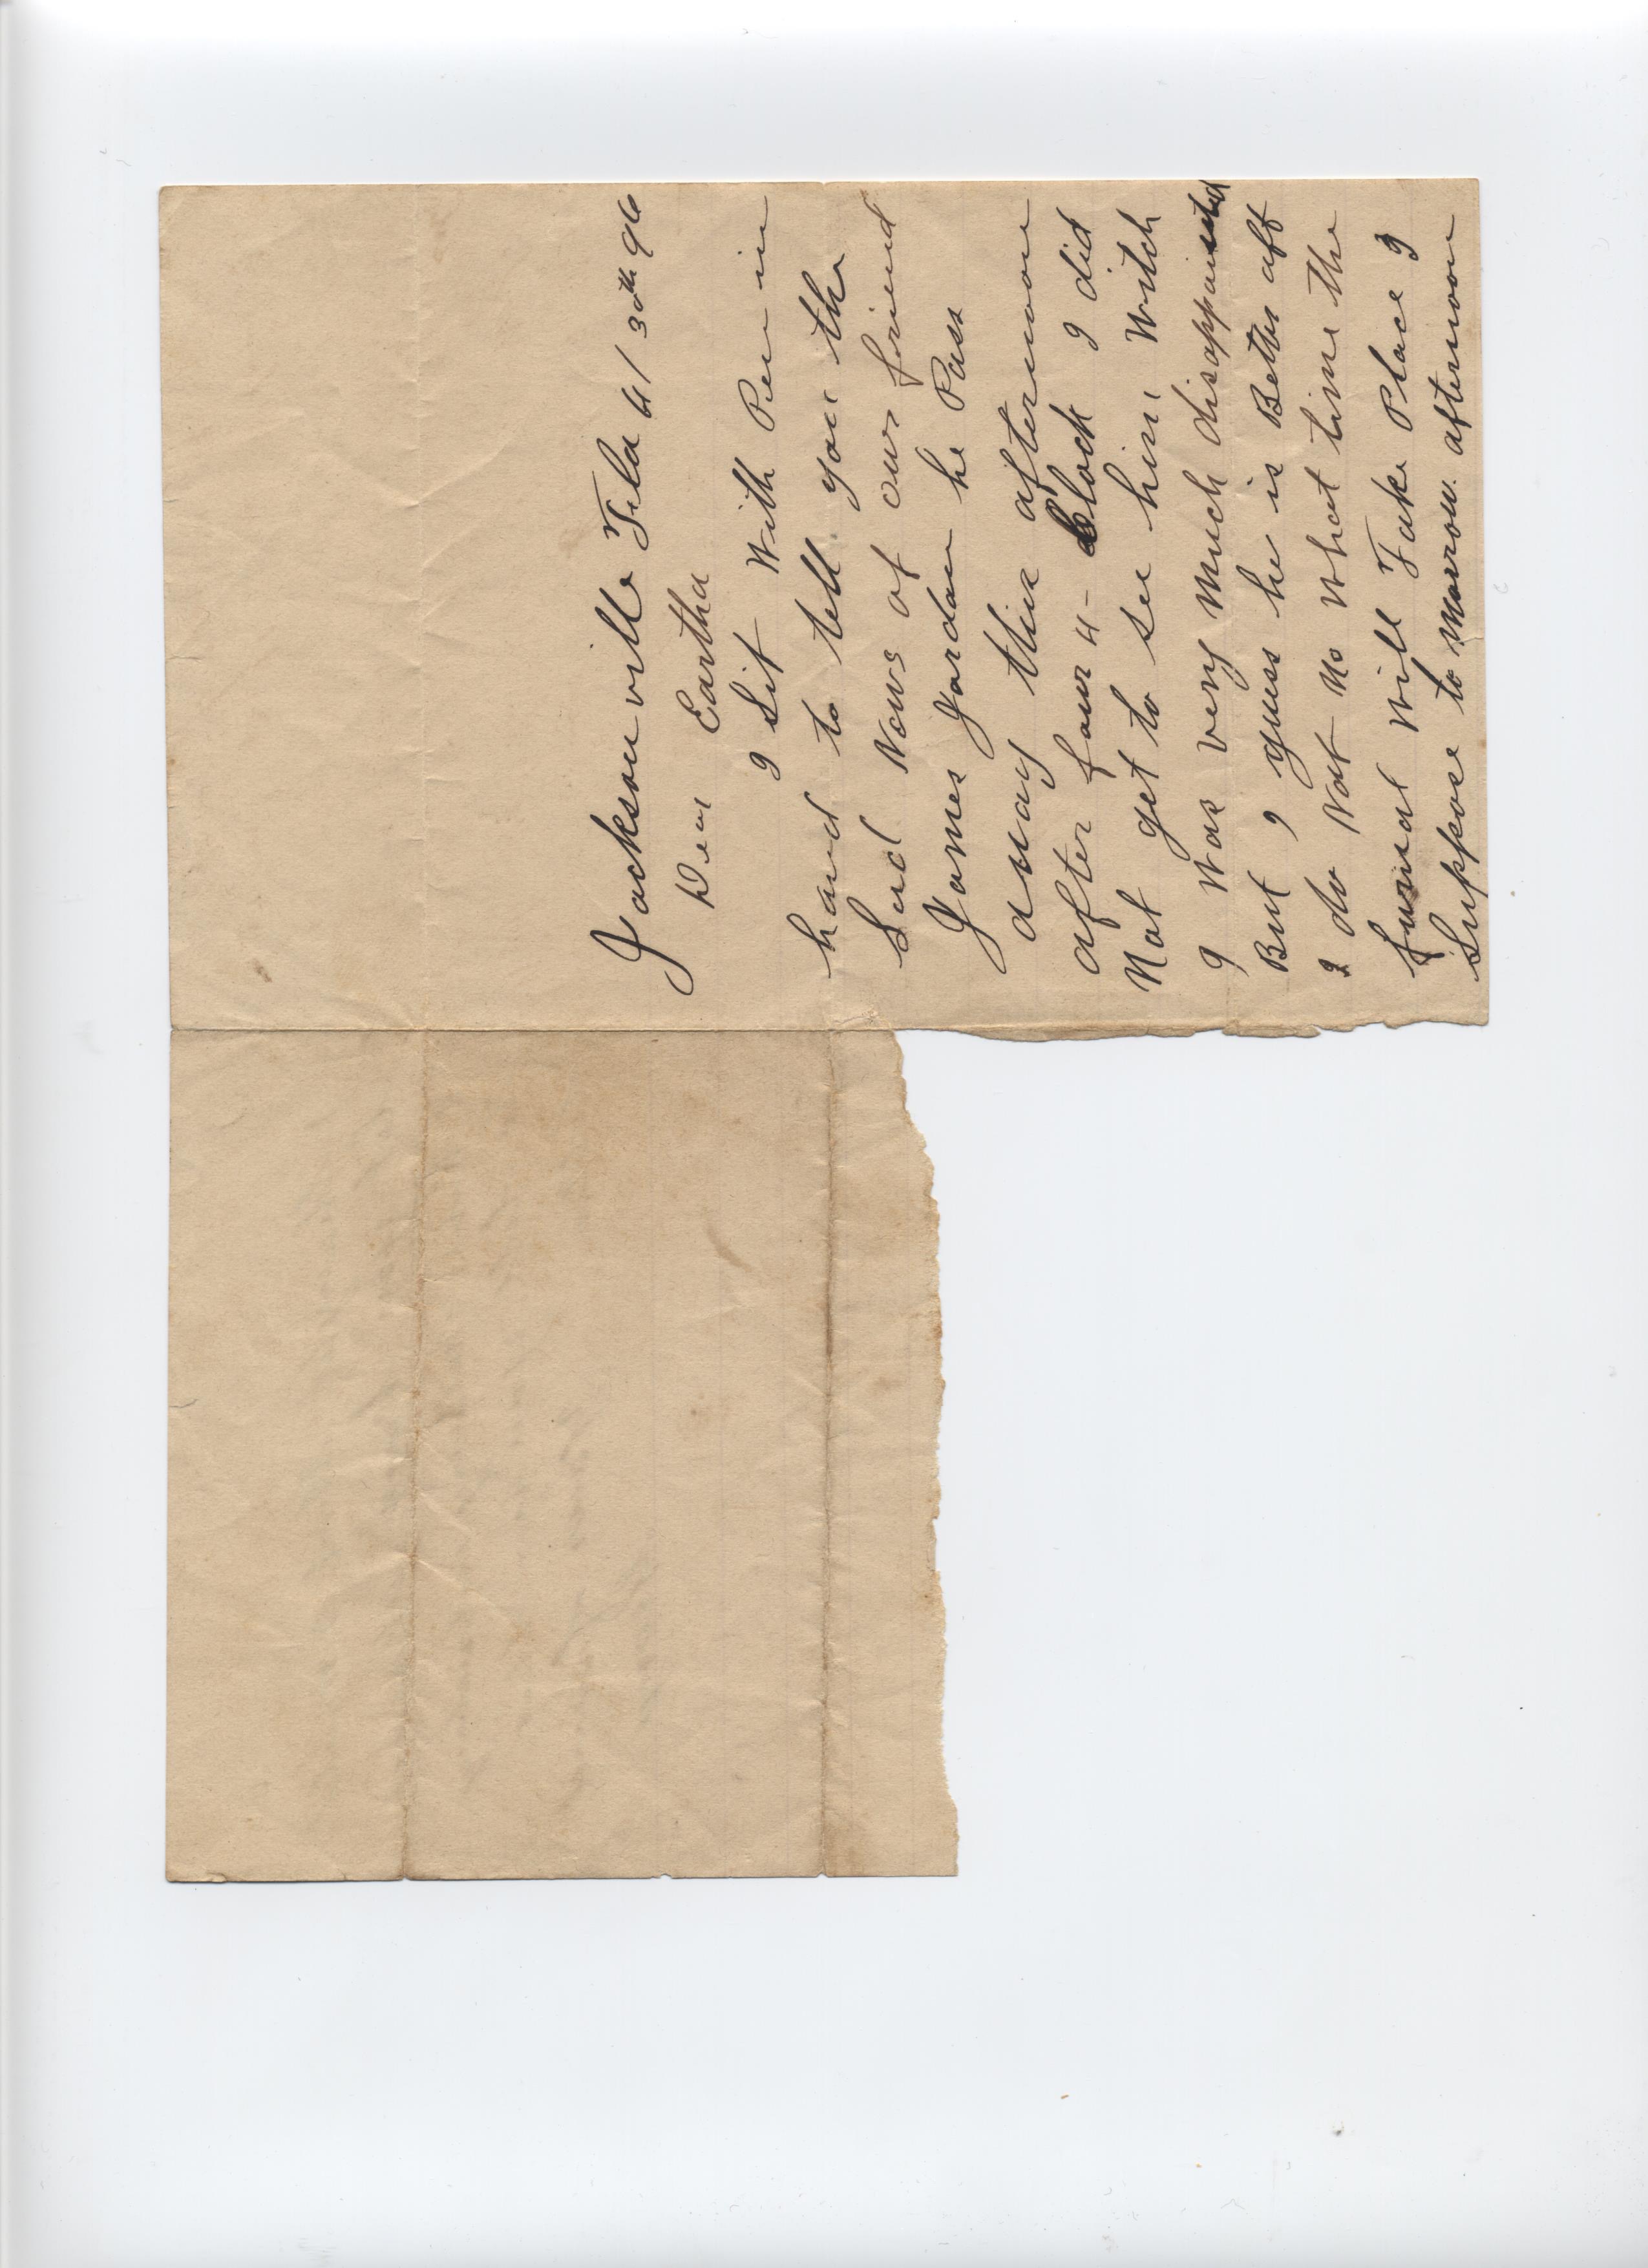 Jacksonville Fla 4/30th 96
Dear Eartha
I Sit With Pen in
hand to tell you the
Sad News of our friend
James Jordan he Pass
away this afternoon
after four 4- Clock I did
Not get to see him, Witch
I Was very Much disappointed
But I guess he is Better off
I do Not no What time the
funeral Will Take Place I
Suppose to Morrow afternoon